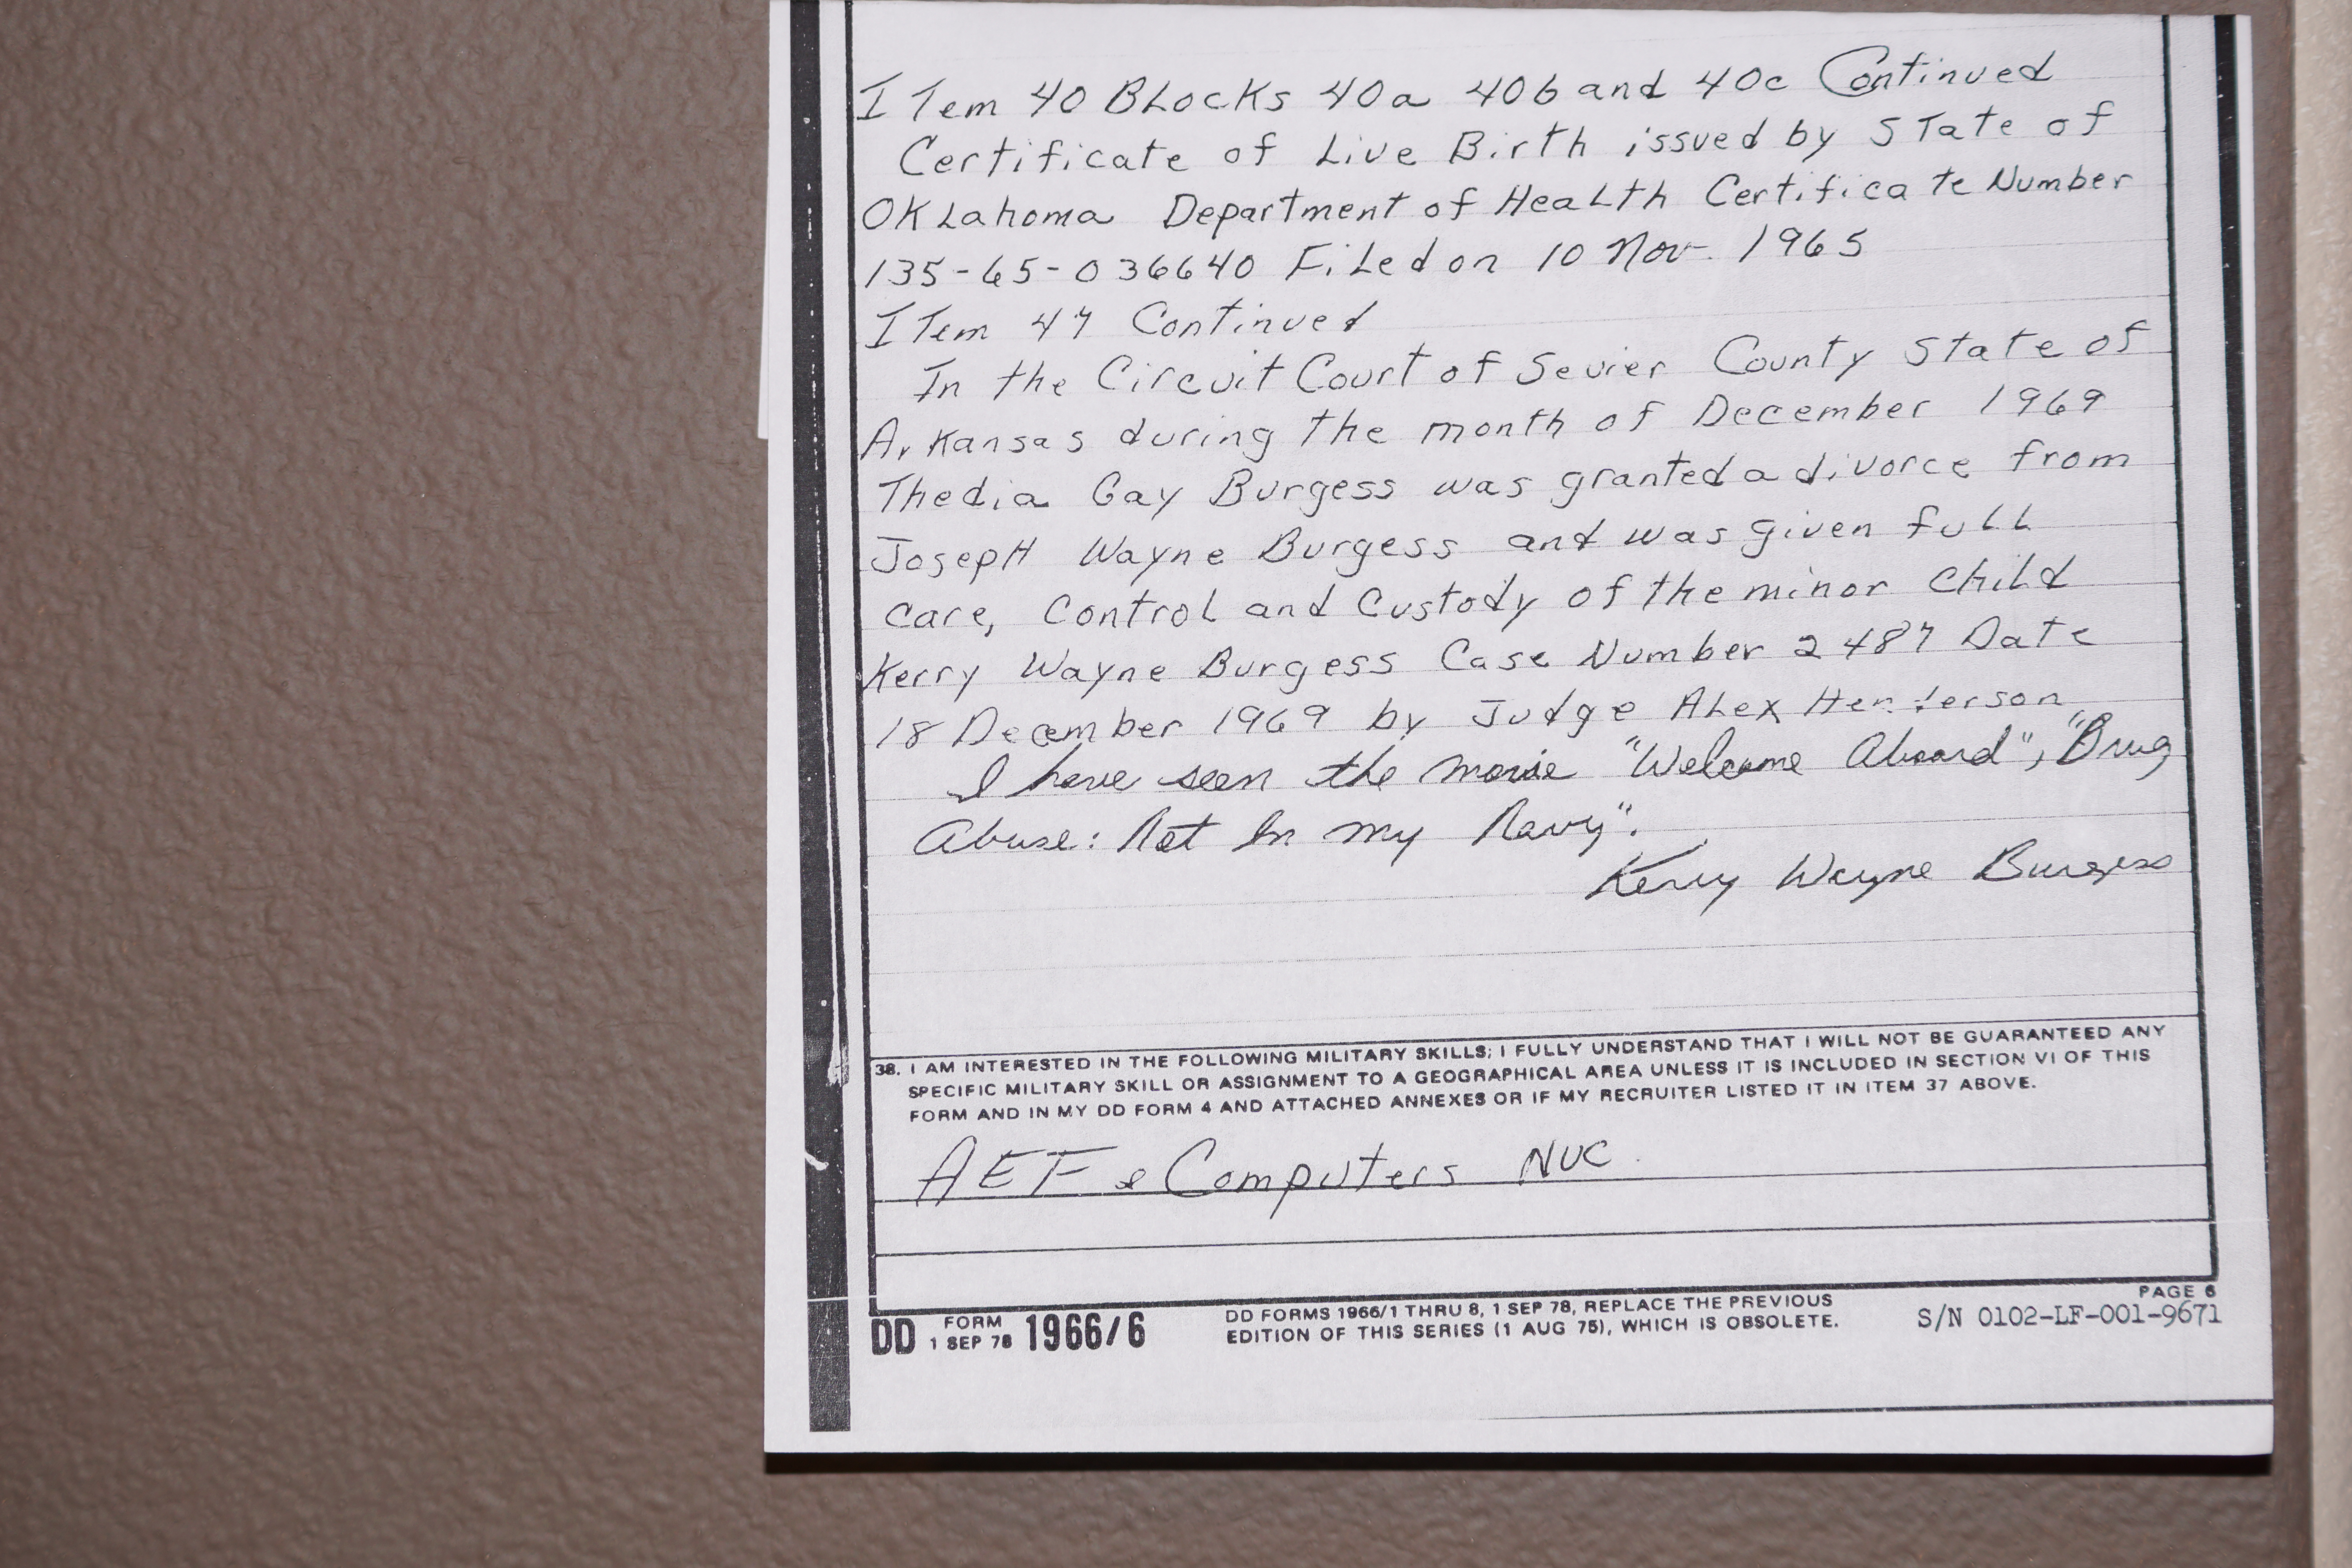 ITem 40 BLocKs 40a 40b and 40c Continued
Certificate of Live Birth issued by STate of
OKLahoma Department of HeaLth Certificate Number
135-65-036640 FiLed on 10 Nov. 1965
ITem 47 Continued
In the Circuit Court of Sevier County State of
Arkansas during the month of December 1969
Thedia Gay Burgess was granted a divorce from
JosepH Wayne Burgess and was given fuLL
care, controL and Custody of the minor chiLd
Kerry Wayne Burgess Case Number 2487 Date
18 December 1969 by Judge ALex Henderson
I have seen the movie "Welcome Aboard", "Drug
Abuse: Not In My Navy".
Kerry Wayne Burgess
38. I AM INTERESTED IN THE FOLLOWING MILITARY SKILLS; I FULLY UNDERSTAND THAT I WILL NOT BE GUARANTEED ANY
SPECIFIC MILITARY SKILL OR ASSIGNMENT TO A GEOGRAPHICAL AREA UNLESS IT IS INCLUDED IN SECTION VI OF THIS
FORM AND IN MY DD FORM 4 AND ATTACHED ANNEXES OR IF MY RECRUITER LISTED IT IN ITEM 37 ABOVE.
AEF & Computers NUC
DD FORM 1 SEP 78 1966/6
DD FORMS 1966/1 THRU 8, 1 SEP 78, REPLACE THE PREVIOUS
EDITION OF THIS SERIES (1 AUG 75), WHICH IS OBSOLETE.
PAGE 6
S/N 0102-LF-001-9671